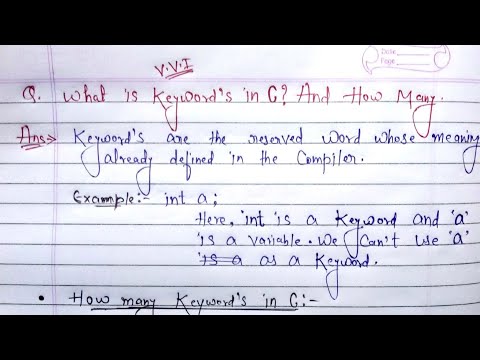 V.V.I
Date
Page
Q. What is Keyword's in C? And How Many.
Ans:→ Keyword's are the reserved word whose meaning
already defined in the Compiler.
Example:- int a;
Here, 'int' is a Keyword and 'a'
is a variable. We Can't use 'a'
is a as a Keyword.
• How many Keyword's in C:-